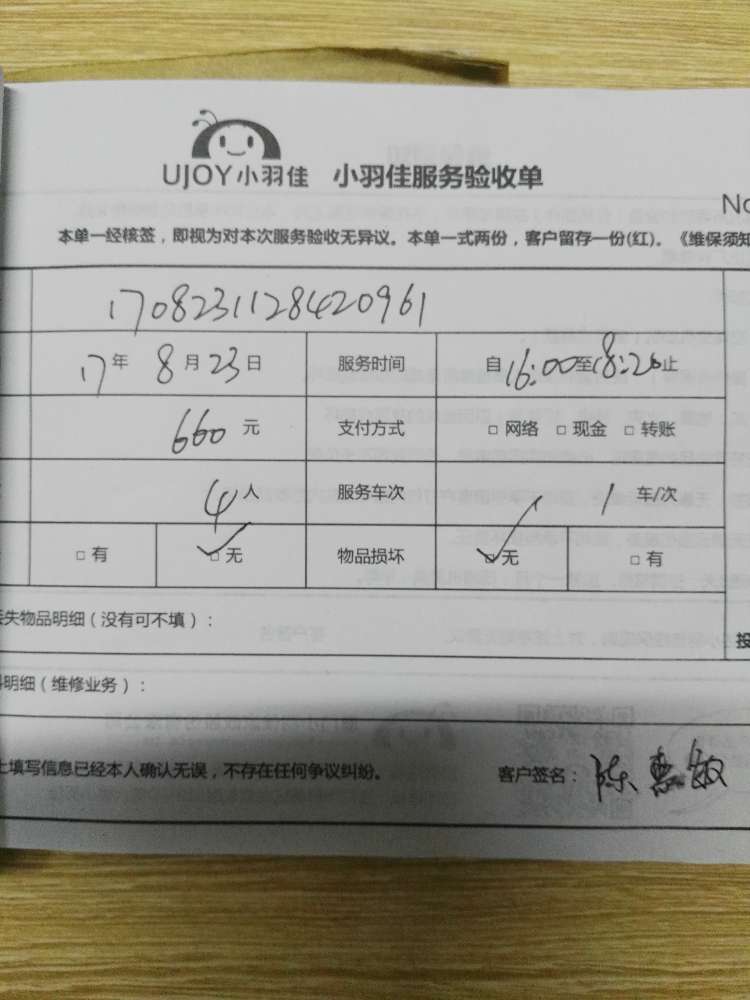 UJOY小羽佳 小羽佳服务验收单
No
本单一经核签，即视为对本次服务验收无异议。本单一式两份，客户留存一份(红)。《维保须知
170823112842096 1
17年 8月23日 服务时间 自16:00至18:20止
660元 支付方式 □ 网络 □ 现金 □ 转账
4人 服务车次 1 车/次
□ 有 □ 无 物品损坏 □ 无 □ 有
失物品明细（没有可不填）：
明细（维修业务）：
上填写信息已经本人确认无误，不存在任何争议纠纷。 客户签名：陈惠敏